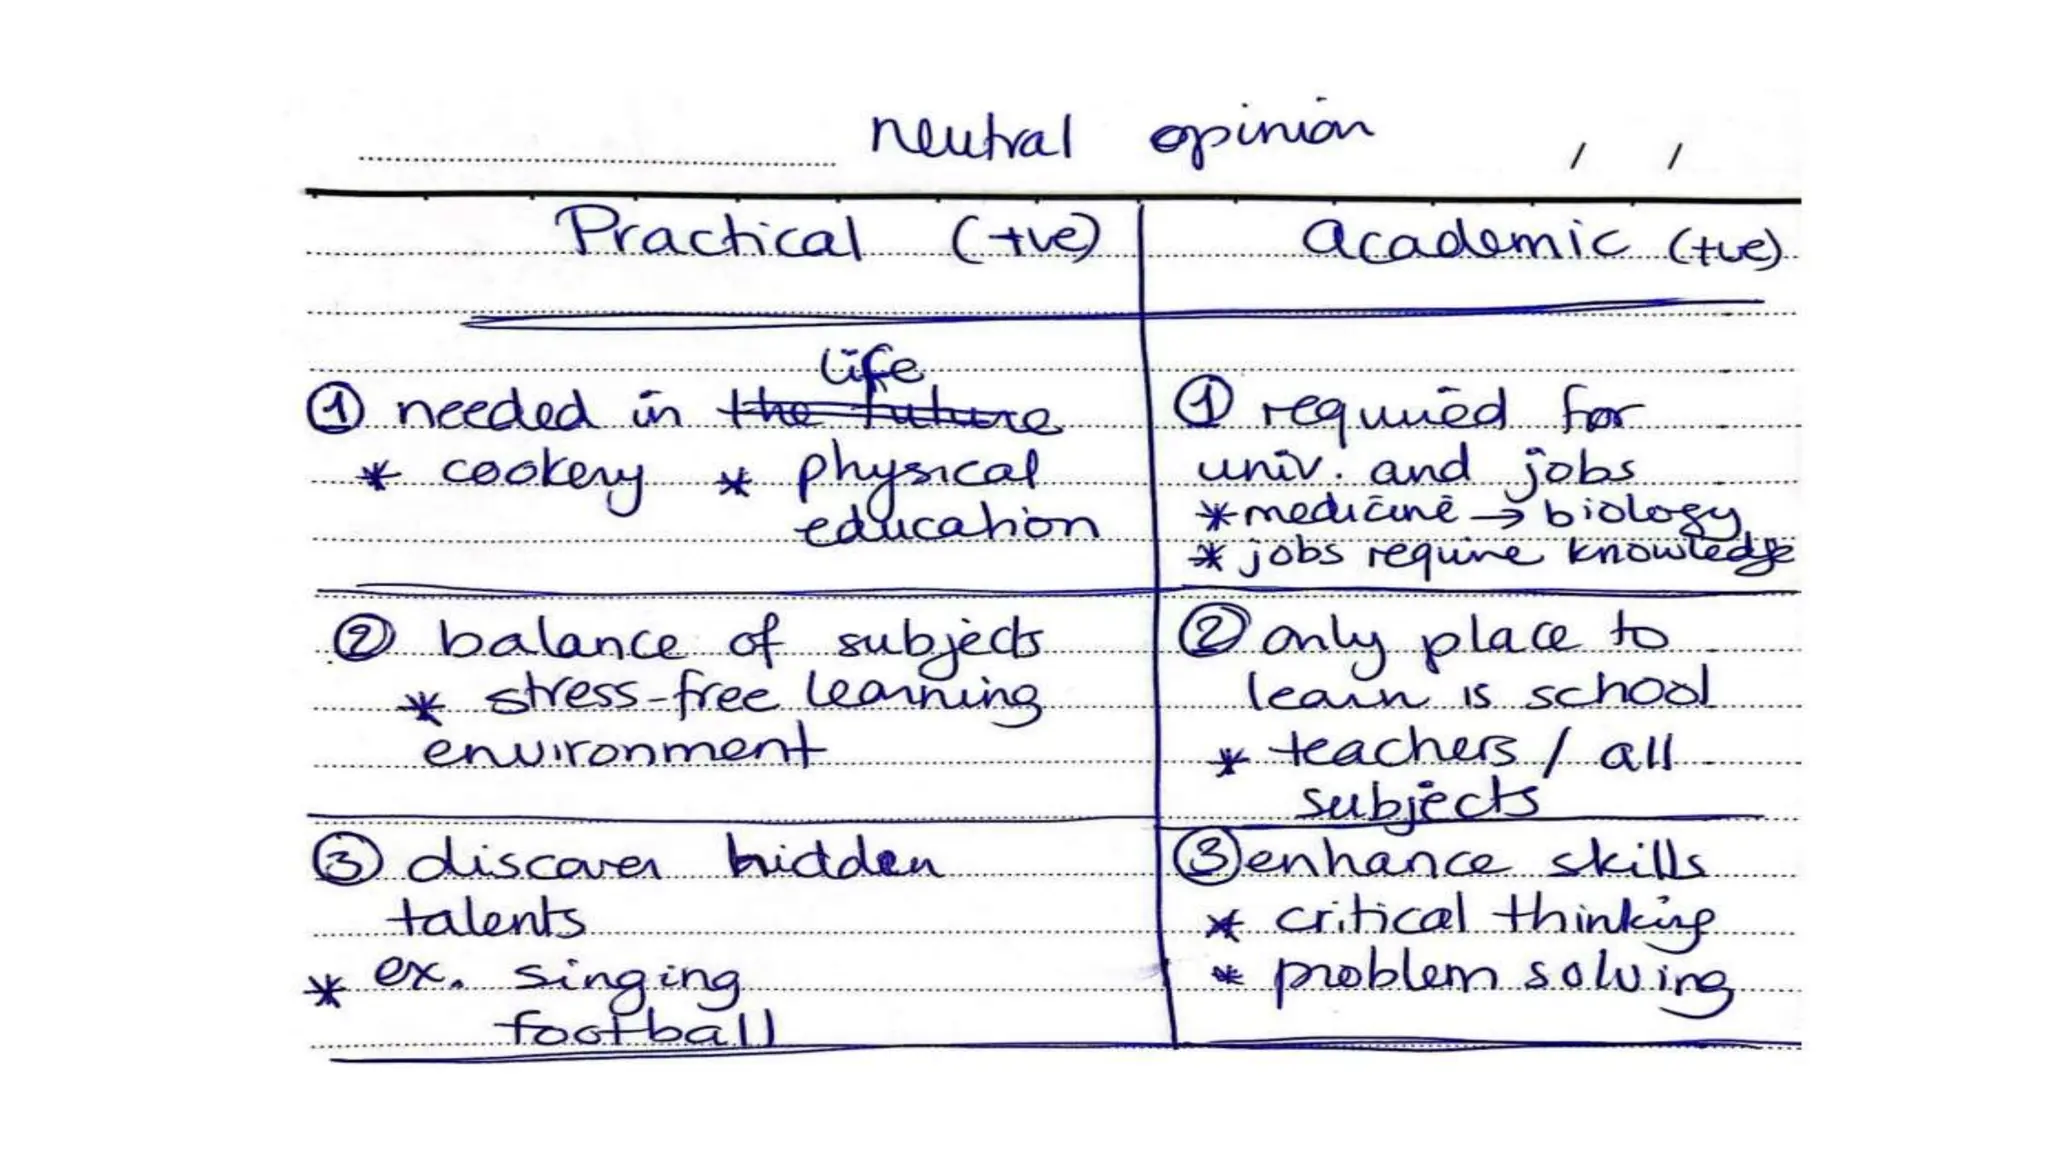 Neutral opinion / /
Practical (+ve)
① needed in life ~~the future~~
* cookery * physical
education
② balance of subjects
* stress-free learning
environment
③ discover hidden
talents
* ex. singing
football
academic (+ve)
① required for
univ. and jobs
* medicine → biology
* jobs require knowledge
② only place to
learn is school
* teachers / all
subjects
③ enhance skills
* critical thinking
* problem solving